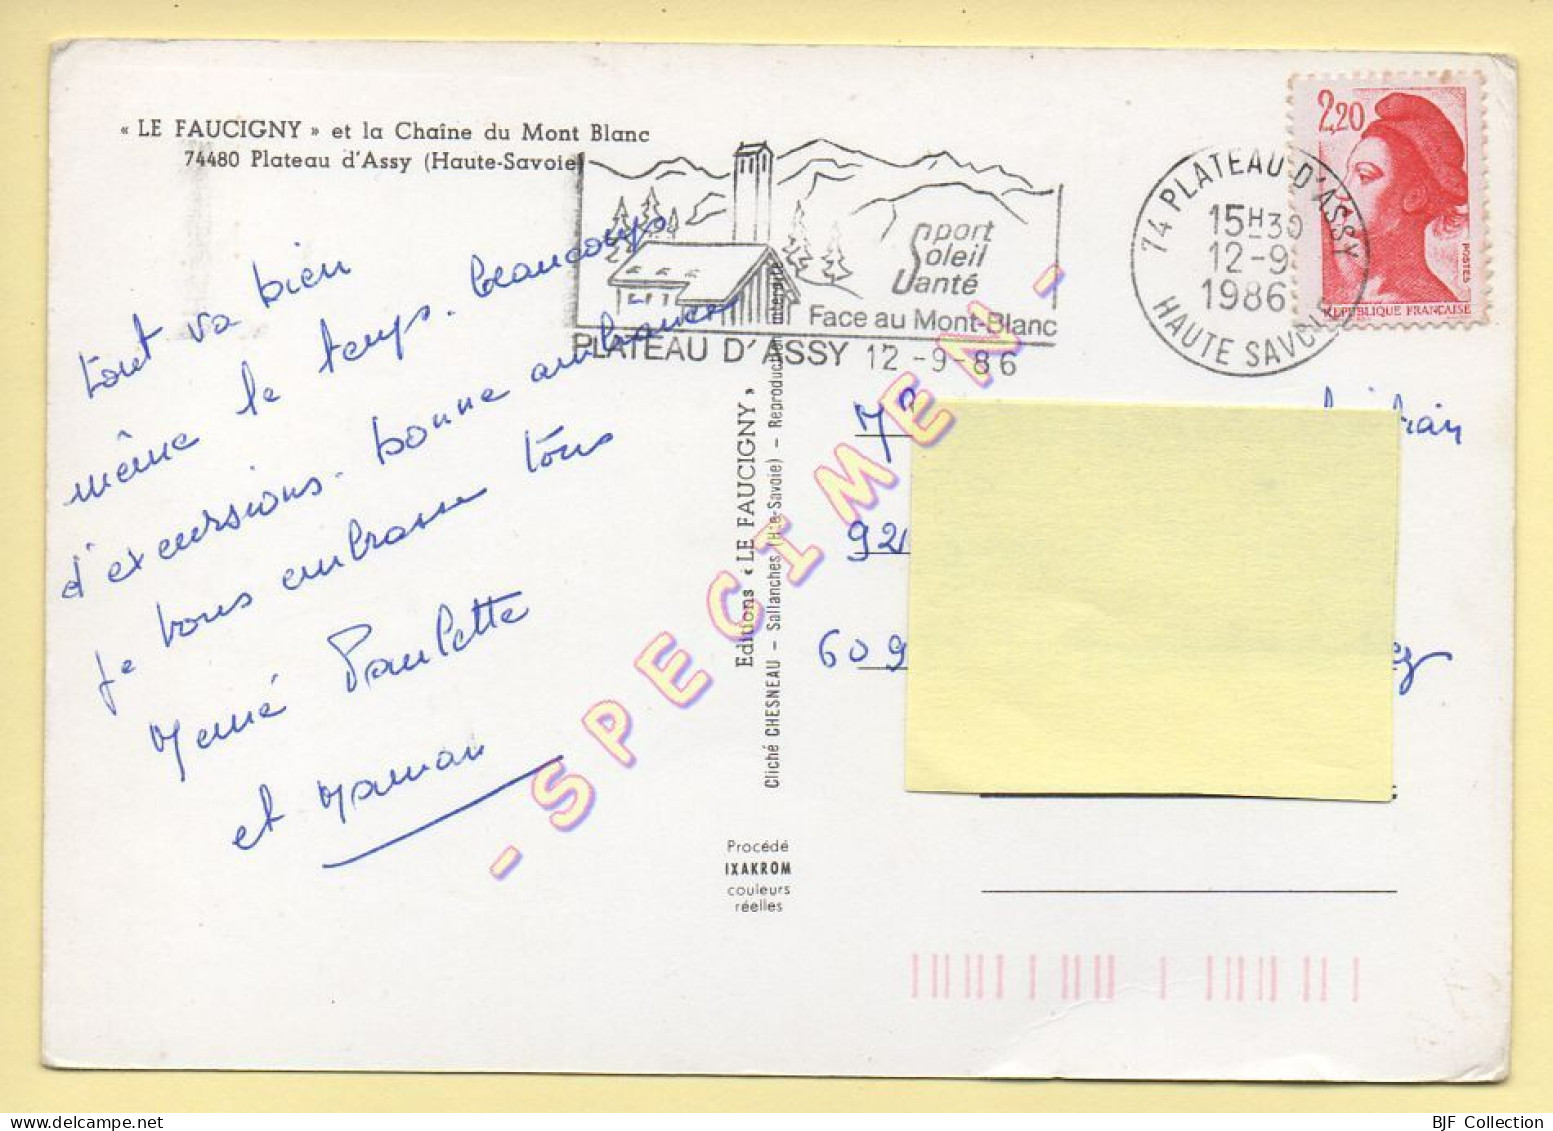 « LE FAUCIGNY » et la Chaîne du Mont Blanc
74480 Plateau d'Assy (Haute-Savoie)
tout va bien
même le temps. beaucoup
d'excursions. bonne ambiance
je vous embrasse tous
Mémé Paulette
et Maman
Sport
Soleil
Santé
Face au Mont-Blanc
PLATEAU D'ASSY 12 -9 -86
74 PLATEAU D'ASSY
15H30
12-9
1986
HAUTE SAVOIE
2,20
POSTES
REPUBLIQUE FRANCAISE
Editions « LE FAUCIGNY »
Cliché CHESNEAU - Sallanches (Hte-Savoie) - Reproduction interdite
- SPECIMEN -
92
609
Procédé
IXAKROM
couleurs
réelles
BJF Collection